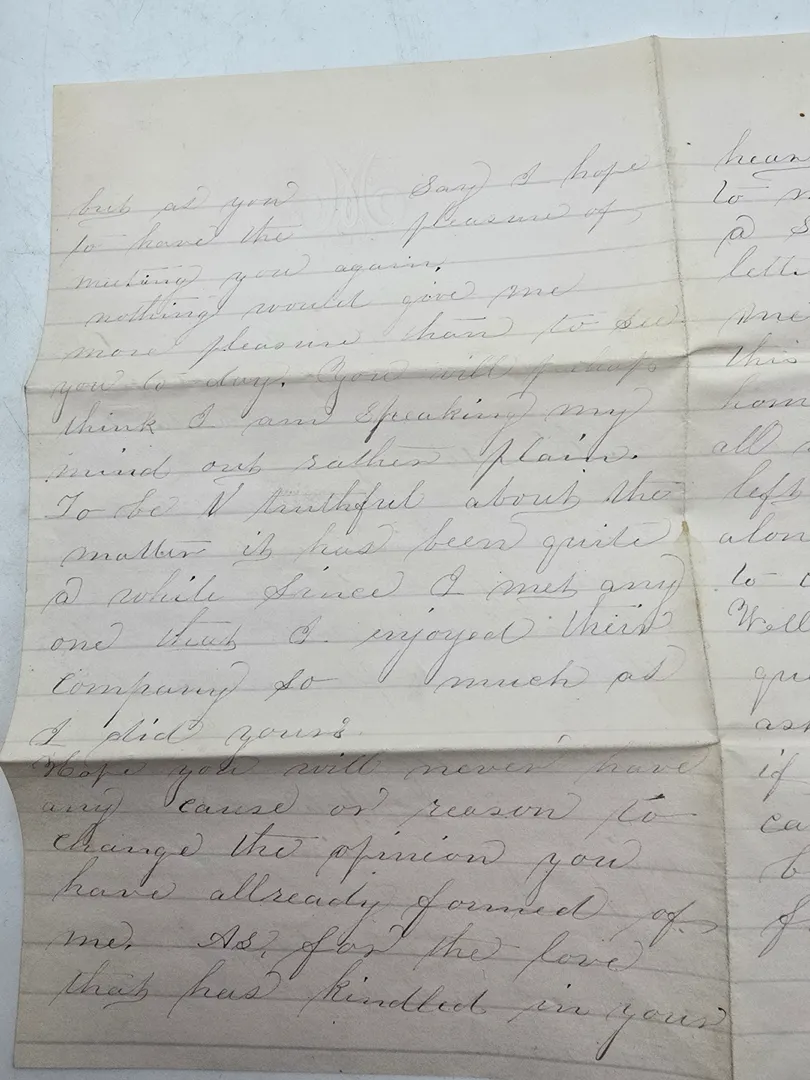 but as you say I hope
to have the pleasure of
meeting you again.
nothing would give me
more pleasure than to see
you to day. You will perhaps
think I am speaking my
mind out rather plain.
To be truthful about the
matter it has been quite
a while since I met any
one that I enjoyed their
company so much as
I did yours.
Hope you will never have
any cause or reason to
change the opinion you
have allready formed of
me. As, for the love
that has kindled in your
to
a
this
all
left
to
Well
if